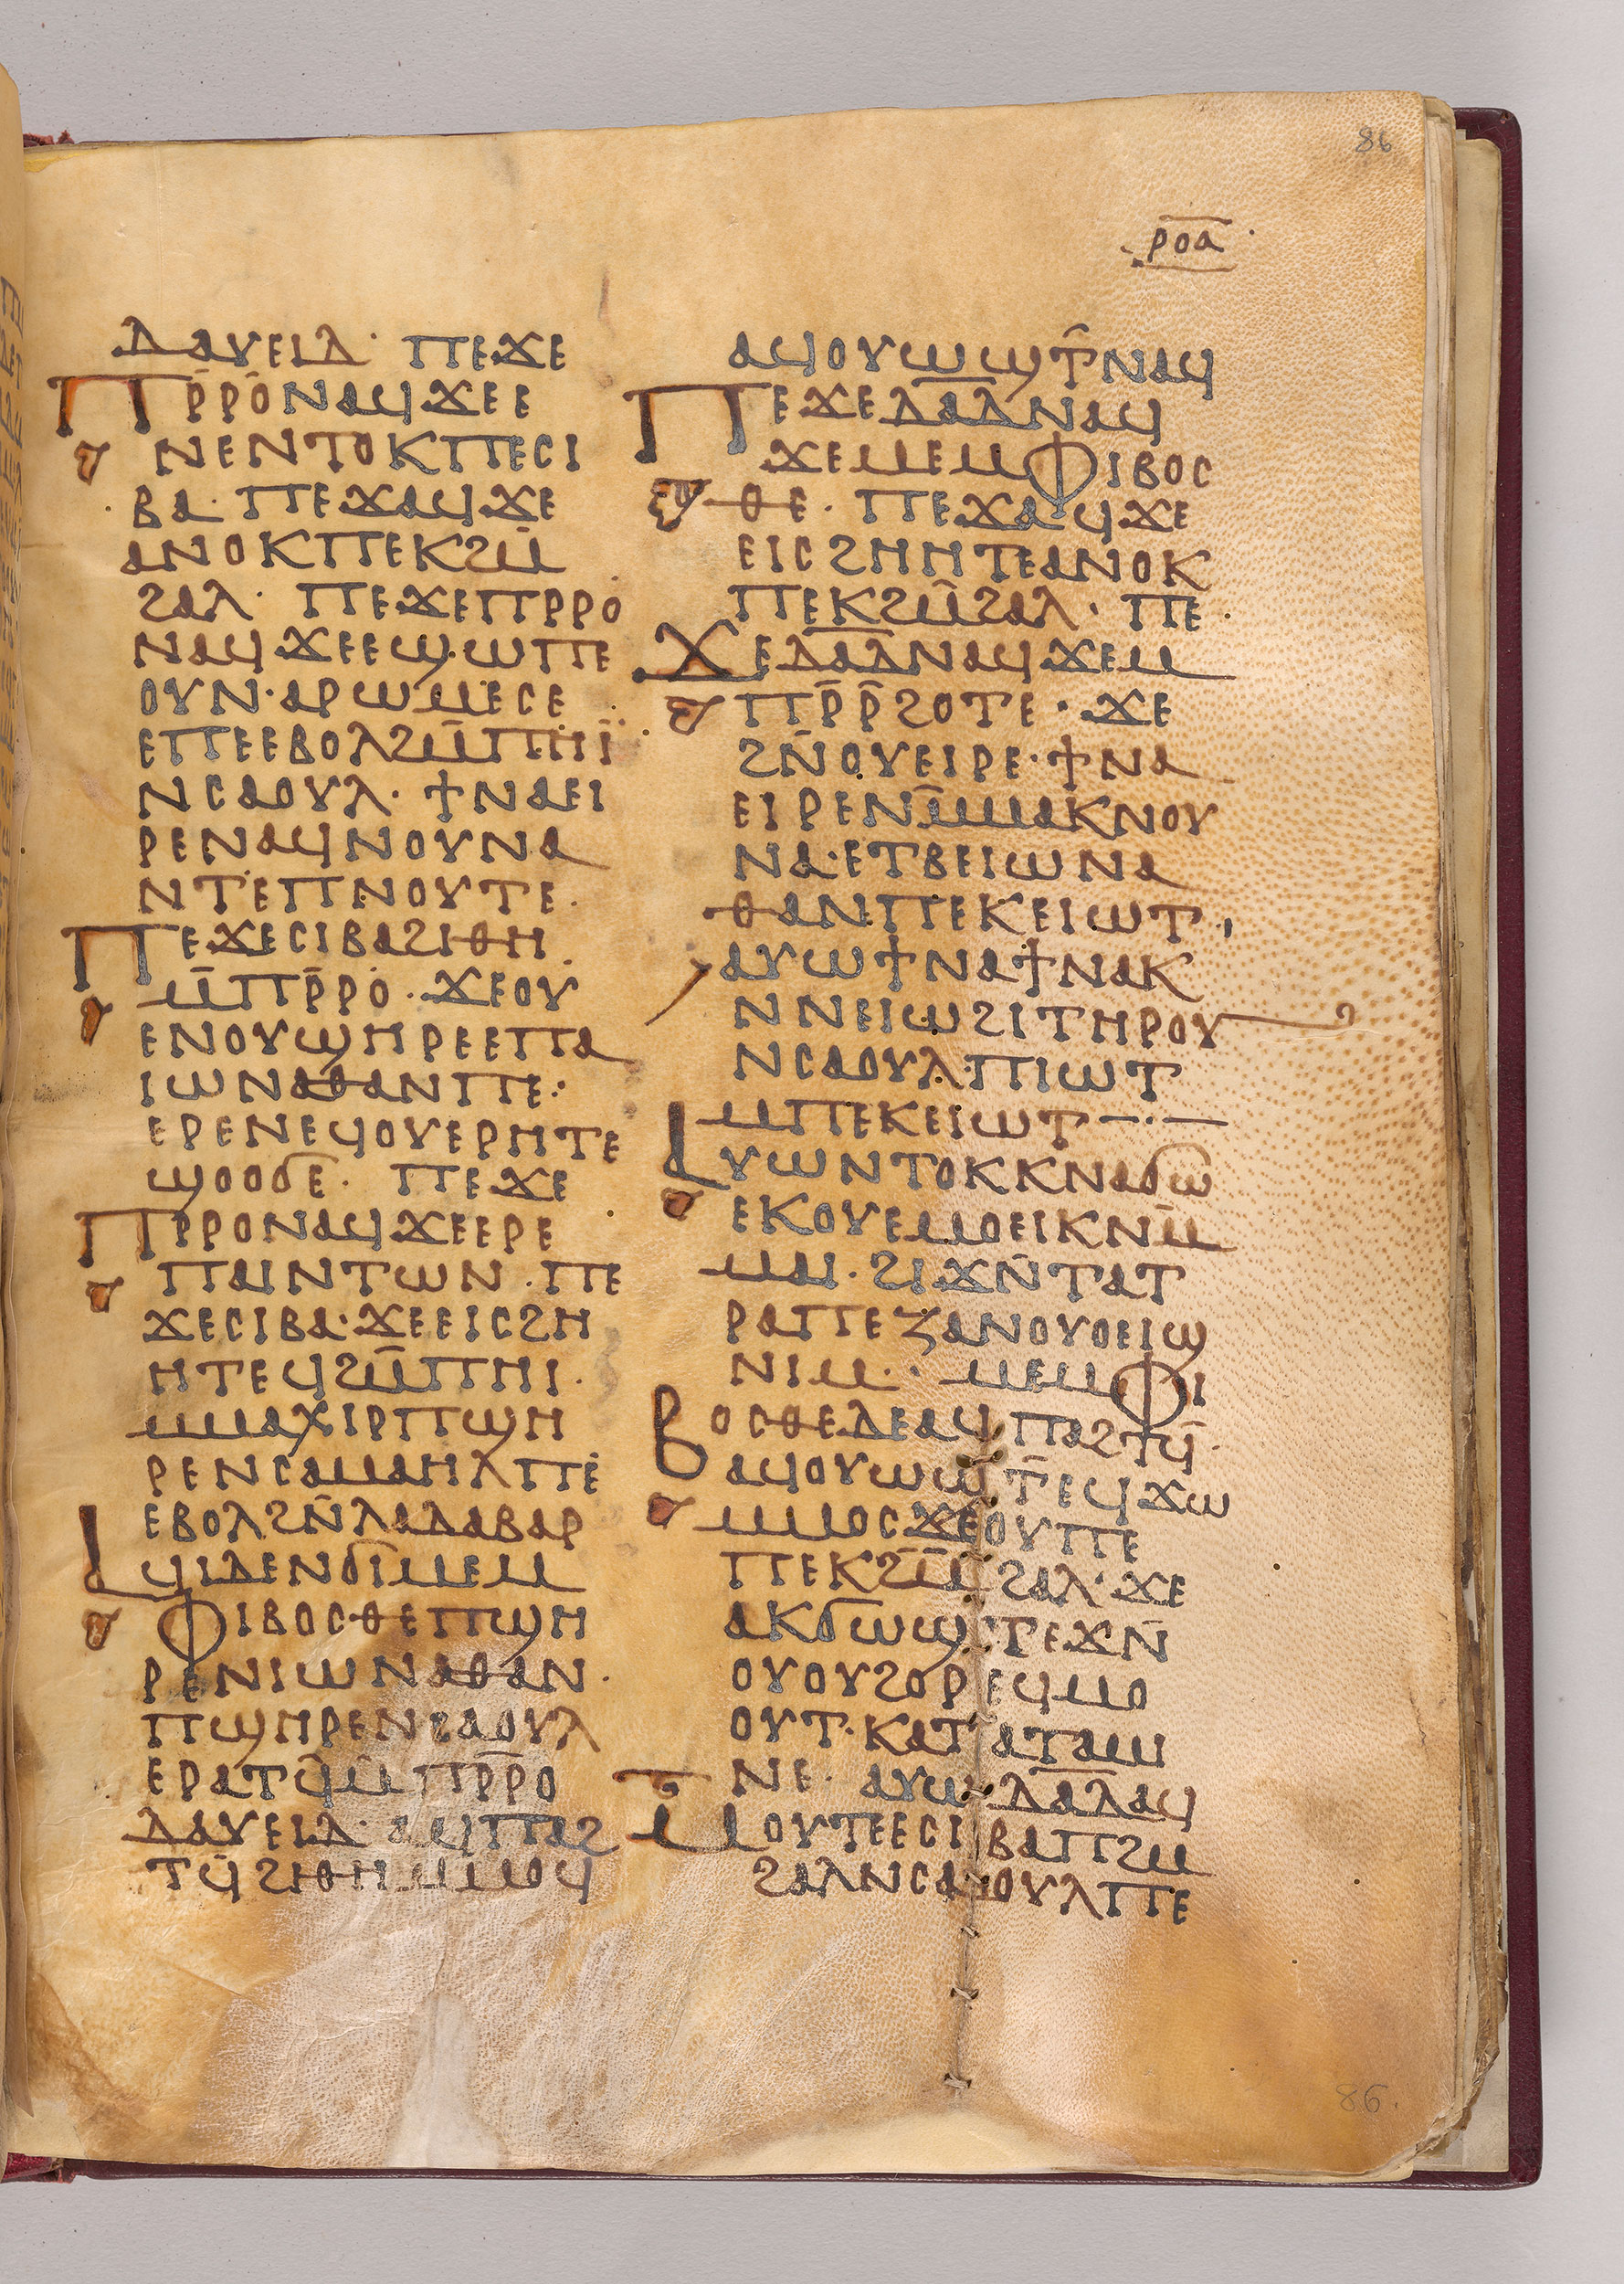 86
ⲣⲟⲁ̅
ⲇⲁⲩⲉⲓⲇ· ⲡⲉϫⲉ
ⲡⲣ̅ⲣⲟ̅ⲛⲁϥϫⲉⲉ
ⲛⲉⲛⲧⲟⲕⲡⲉⲥⲓ
ⲃⲁ· ⲡⲉϫⲁϥϫⲉ
ⲁⲛⲟⲕⲡⲉⲕϩⲙ̅
ϩⲁⲗ· ⲡⲉϫⲉⲡⲣⲣⲟ
ⲛⲁϥϫⲉⲉϣϣⲡⲉ
ⲟⲩⲛ·ⲁⲣⲱⲙⲉⲥⲉ
ⲉⲡⲉⲉⲃⲟⲗϩⲙ̅ⲡⲏⲓ̈
ⲛⲥⲁⲟⲩⲗ· ϯⲛⲁⲉⲓ
ⲣⲉⲛⲁϥⲛⲟⲩⲛⲁ
ⲛⲧⲉⲡⲛⲟⲩⲧⲉ·
ⲡⲉϫⲉⲥⲓⲃⲁϩⲓⲑⲏ
ⲙ̅ⲡⲣ̅ⲣⲟ· ϫⲉⲟⲩ
ⲉⲛⲟⲩϣⲏⲣⲉⲉⲡⲁ
ⲓⲱⲛⲁⲑⲁⲛⲡⲉ·
ⲉⲣⲉⲛⲉϥⲟⲩⲉⲣⲏⲧⲉ
ϣⲟⲟϭⲉ· ⲡⲉϫⲉ
ⲡⲣⲣⲟⲛⲁϥϫⲉⲉⲣⲉ
ⲡⲁⲓⲛⲧⲱⲛ·ⲡⲉ
ϫⲉⲥⲓⲃⲁ·ϫⲉⲉⲓⲥϩⲏ
ⲏⲧⲉϥϩⲙ̅ⲡⲏⲓ·
ⲙⲙⲁⲭⲓⲣⲡϣⲏ
ⲣⲉⲛⲥⲁⲙⲁⲏⲗⲡⲉ
ⲉⲃⲟⲗϩⲛ̅ⲗⲁⲇⲁⲃⲁⲣ
ⲁϥⲓⲇⲉⲛϭⲓⲙⲉⲙ
ⲫⲓⲃⲟⲥⲑⲉⲡϣⲏ
ⲣⲉⲛⲓⲱⲛⲁⲑⲁⲛ·
ⲡϣⲏⲣⲉⲛⲥⲁⲟⲩⲗ
ⲉⲣⲁⲧϥ̅ⲙ̅ⲡⲣ̅ⲣⲟ
ⲇⲁⲩⲉⲓⲇ·ⲁϥⲡⲁϩ
ⲧϥ̅ϩⲓⲑⲏⲙⲙⲟϥ
ⲁϥⲟⲩⲱϣⲧ̅ⲛⲁϥ
ⲡⲉϫⲉⲇⲁ̅ⲇⲛⲁϥ
ϫⲉⲙⲉⲙⲫⲓⲃⲟⲥ
ⲑⲉ· ⲡⲉϫⲁϥϫⲉ
ⲉⲓⲥϩⲏⲏⲧⲉⲁⲛⲟⲕ
ⲡⲉⲕϩⲙ̅ϩⲁⲗ· ⲡⲉ
ϫⲉⲇⲁ̅ⲇⲛⲁϥϫⲉⲙ
ⲡⲣ̅ⲣ̅ϩⲟⲧⲉ·ϫⲉ
ϩⲛ̅ⲟⲩⲉⲓⲣⲉ·ϯⲛⲁ
ⲉⲓⲣⲉⲛⲙ̅ⲙⲁⲕⲛⲟⲩ
ⲛⲁ·ⲉⲧⲃⲉⲓⲱⲛⲁ
ⲑⲁⲛⲡⲉⲕⲉⲓⲱⲧ·
ⲁⲩⲱϯⲛⲁϯⲛⲁⲕ
ⲛⲛⲉⲓⲱϩⲓⲧⲏⲣⲟⲩ
ⲛⲥⲁⲟⲩⲗ·ⲡⲓⲱⲧ
ⲙⲡⲉⲕⲉⲓⲱⲧ—·—
ⲁⲩⲱⲛⲧⲟⲕⲕⲛⲁϭⲱ
ⲉⲕⲟⲩⲉⲙⲟⲉⲓⲕⲛⲙ̅
ⲙⲁⲓ·ϩⲓϫⲛ̅ⲧⲁⲧ
ⲣⲁⲡⲉⲍⲁⲛⲟⲩⲟⲉⲓϣ
ⲛⲓⲙ·· ⲙⲉⲙⲫⲓ
ⲃⲟⲥⲑⲉⲇⲉⲁϥⲡⲁϩⲧϥ̅·
ⲁϥⲟⲩⲱϣⲧ̅ⲉϥϫⲱ
ⲙⲙⲟⲥϫⲉⲟⲩⲡⲉ
ⲡⲉⲕϩⲙ̅ϩⲁⲗ·ϫⲉ
ⲁⲕϭⲱϣⲧⲉϫⲛ̅
ⲟⲩⲟⲩϩⲟⲣⲉϥⲙⲟ
ⲟⲩⲧ·ⲕⲁⲧⲁⲧⲁⲙⲓ
ⲛⲉ· ⲁⲩⲱⲇⲁ̅ⲇⲁϥ
ⲙⲟⲩⲧⲉⲉⲥⲓⲃⲁⲡϩⲙ
ϩⲁⲗⲛⲥⲁⲟⲩⲗⲡⲉ
86.